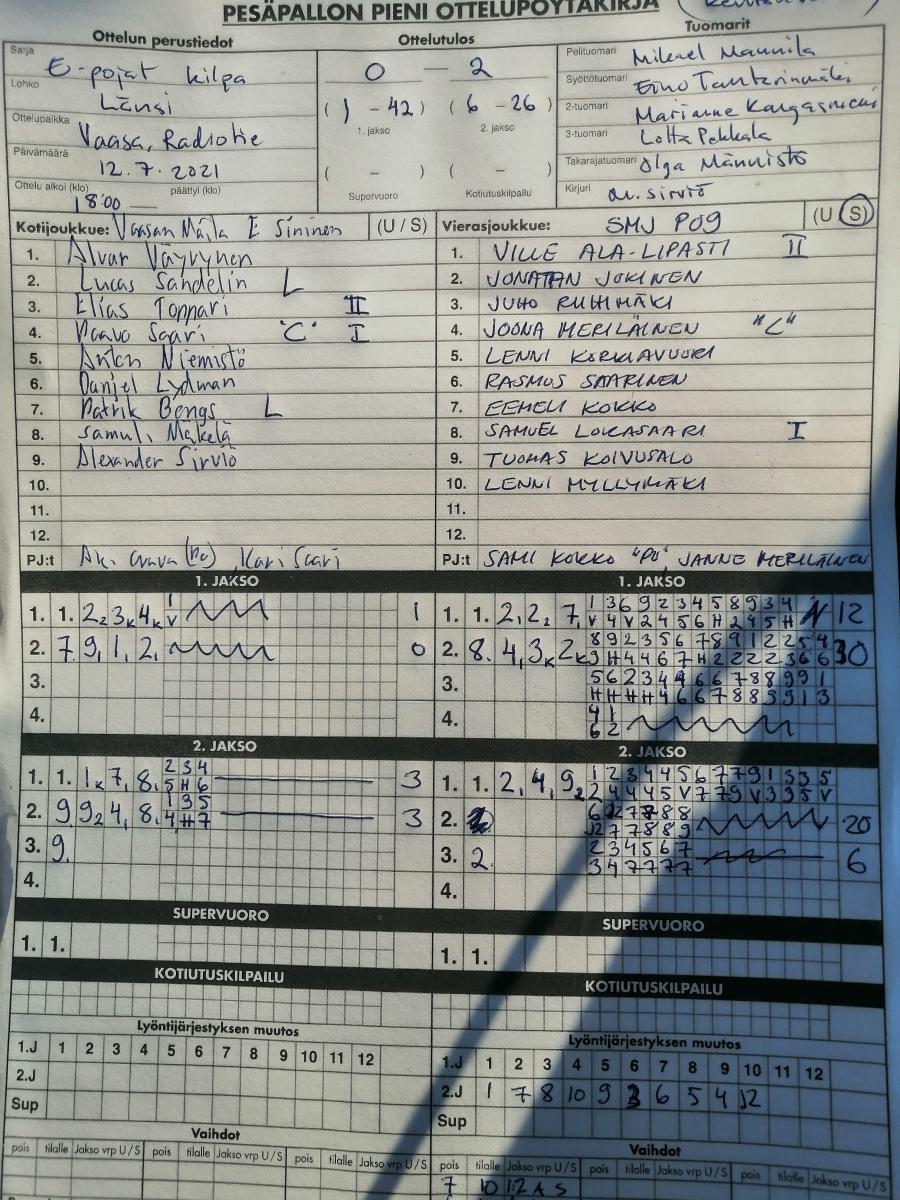 PESÄPALLON PIENI OTTELUPÖYTÄKIRJA
Ottelun perustiedot
Sarja E-pojat kilpa
Lohko Länsi
Ottelupaikka Vaasa, Radiotie
Päivämäärä 12.7.2021
Ottelu alkoi (klo) 18:00 päättyi (klo)
Ottelutulos
0 — 2
(1 - 42) (6 - 26)
1. jakso 2. jakso
( - ) ( - )
Supervuoro Kotiutuskilpailu
Tuomarit
Pelituomari Mikael Mannila
Syöttötuomari Eino
2-tuomari Marianne
3-tuomari Lotta Pekkala
Takarajatuomari Olga Männistö
Kirjuri Sirviö
Kotijoukkue: Vaasan Maila E Sininen (U / S)
1. Alvar Väyrynen
2. Lucas Sandelin L
3. Elias Toppari II
4. Paavo Saari "C" I
5. Anton Niemistö
6. Daniel Lydman
7. Patrik Bengs L
8. Samuli Mäkelä
9. Alexander Sirviö
10.
11.
12.
PJ:t Kari Saari
Vierasjoukkue: SMJ P09 (U S)
1. VILLE ALA-LIPASTI II
2. JONATAN JOKINEN
3. JUHO RUHIMÄKI
4. JOONA MERILÄINEN "C"
5. LENNI KORKIAVUORI
6. RASMUS SAARINEN
7. EEMELI KOKKO
8. SAMUEL LOKASAARI I
9. TUOMAS KOIVUSALO
10. LENNI MYLLYMÄKI
11.
12.
PJ:t SAMI KOKKO "PJ", JANNE MERILÄINEN
1. JAKSO
1. 1. 2₂ 3ₖ 4ₖ 1 V 1
2. 7. 9, 1, 2, 0
3.
4.
2. JAKSO
1. 1. 1ₖ 7, 8, 2 3 4
5 H 6 3
2. 9 9₂ 4, 8, 1 3 5
4 H 7 3
3. 9.
4.
SUPERVUORO
1. 1.
KOTIUTUSKILPAILU
Lyöntijärjestyksen muutos
1.J 1 2 3 4 5 6 7 8 9 10 11 12
2.J
Sup
Vaihdot
pois tilalle Jakso vrp U / S pois tilalle Jakso vrp U / S pois tilalle Jakso vrp U / S
1. JAKSO
1. 1. 2, 2₂ 7, 1 3 6 9 2 3 4 5 8 9 3 4
V 4 V 2 4 5 6 H 2 4 5 H 12
2. 8. 4, 3ₖ 2ₖ 8 9 2 3 5 6 7 8 9 1 2 2 5 4
9 H 4 4 6 7 H 2 2 2 2 3 6 6 30
3. 5 6 2 3 4 4 6 6 7 8 8 9 9 1
H H H H 4 6 6 7 8 8 9 9 1 3
4. 4 1
6 2
2. JAKSO
1. 1. 2, 4, 9₂ 1 2 3 4 4 5 6 7 7 9 1 3 3 5
2 4 4 4 5 V 7 7 9 V 3 3 5 V
2. 6 12 7 7 8 8
12 7 7 8 8 9 20
3. 2. 2 3 4 5 6 7
3 4 7 7 7 7 6
4.
SUPERVUORO
1. 1.
KOTIUTUSKILPAILU
Lyöntijärjestyksen muutos
1.J 1 2 3 4 5 6 7 8 9 10 11 12
2.J 1 7 8 10 9 3 6 5 4 12
Sup
Vaihdot
pois tilalle Jakso vrp U / S pois tilalle Jakso vrp U / S pois tilalle Jakso vrp U / S
7 10 1.2 A S